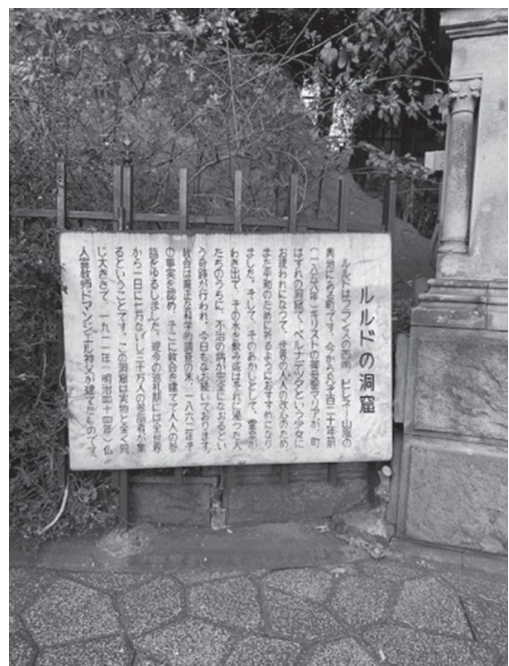 ルルドの洞窟
ルルドはフランスの西南、ピレネー山脈の
奥地にある町です。今から凡そ百二十年前
(一八五八年)キリストの御母聖マリアが、町
はずれの洞窟で、ベルナデッタという少女に
お現われになって、世界の人々の改心のため、
また平和のために祈るようにおすすめになり
ました。そして、そのあかしとして、霊泉が
わき出て、その水を飲み或はそれに浸った人
たちのうちに、不治の病が完全になおるとい
う奇跡が行われ、今日もなお続いております。
教会は厳正な科学的調査の末、一八六二年そ
の事実を認め、そこに教会を建てて人々の参
詣をゆるしました。現今の巡礼期には全世界
から一日に七万ないし三十万人の参詣者が集
るということです。この洞窟は実物と全く同
じ大きさで、一九一一年(明治四十四年)仏
人宣教師ドマンジエル神父が建てたものです。